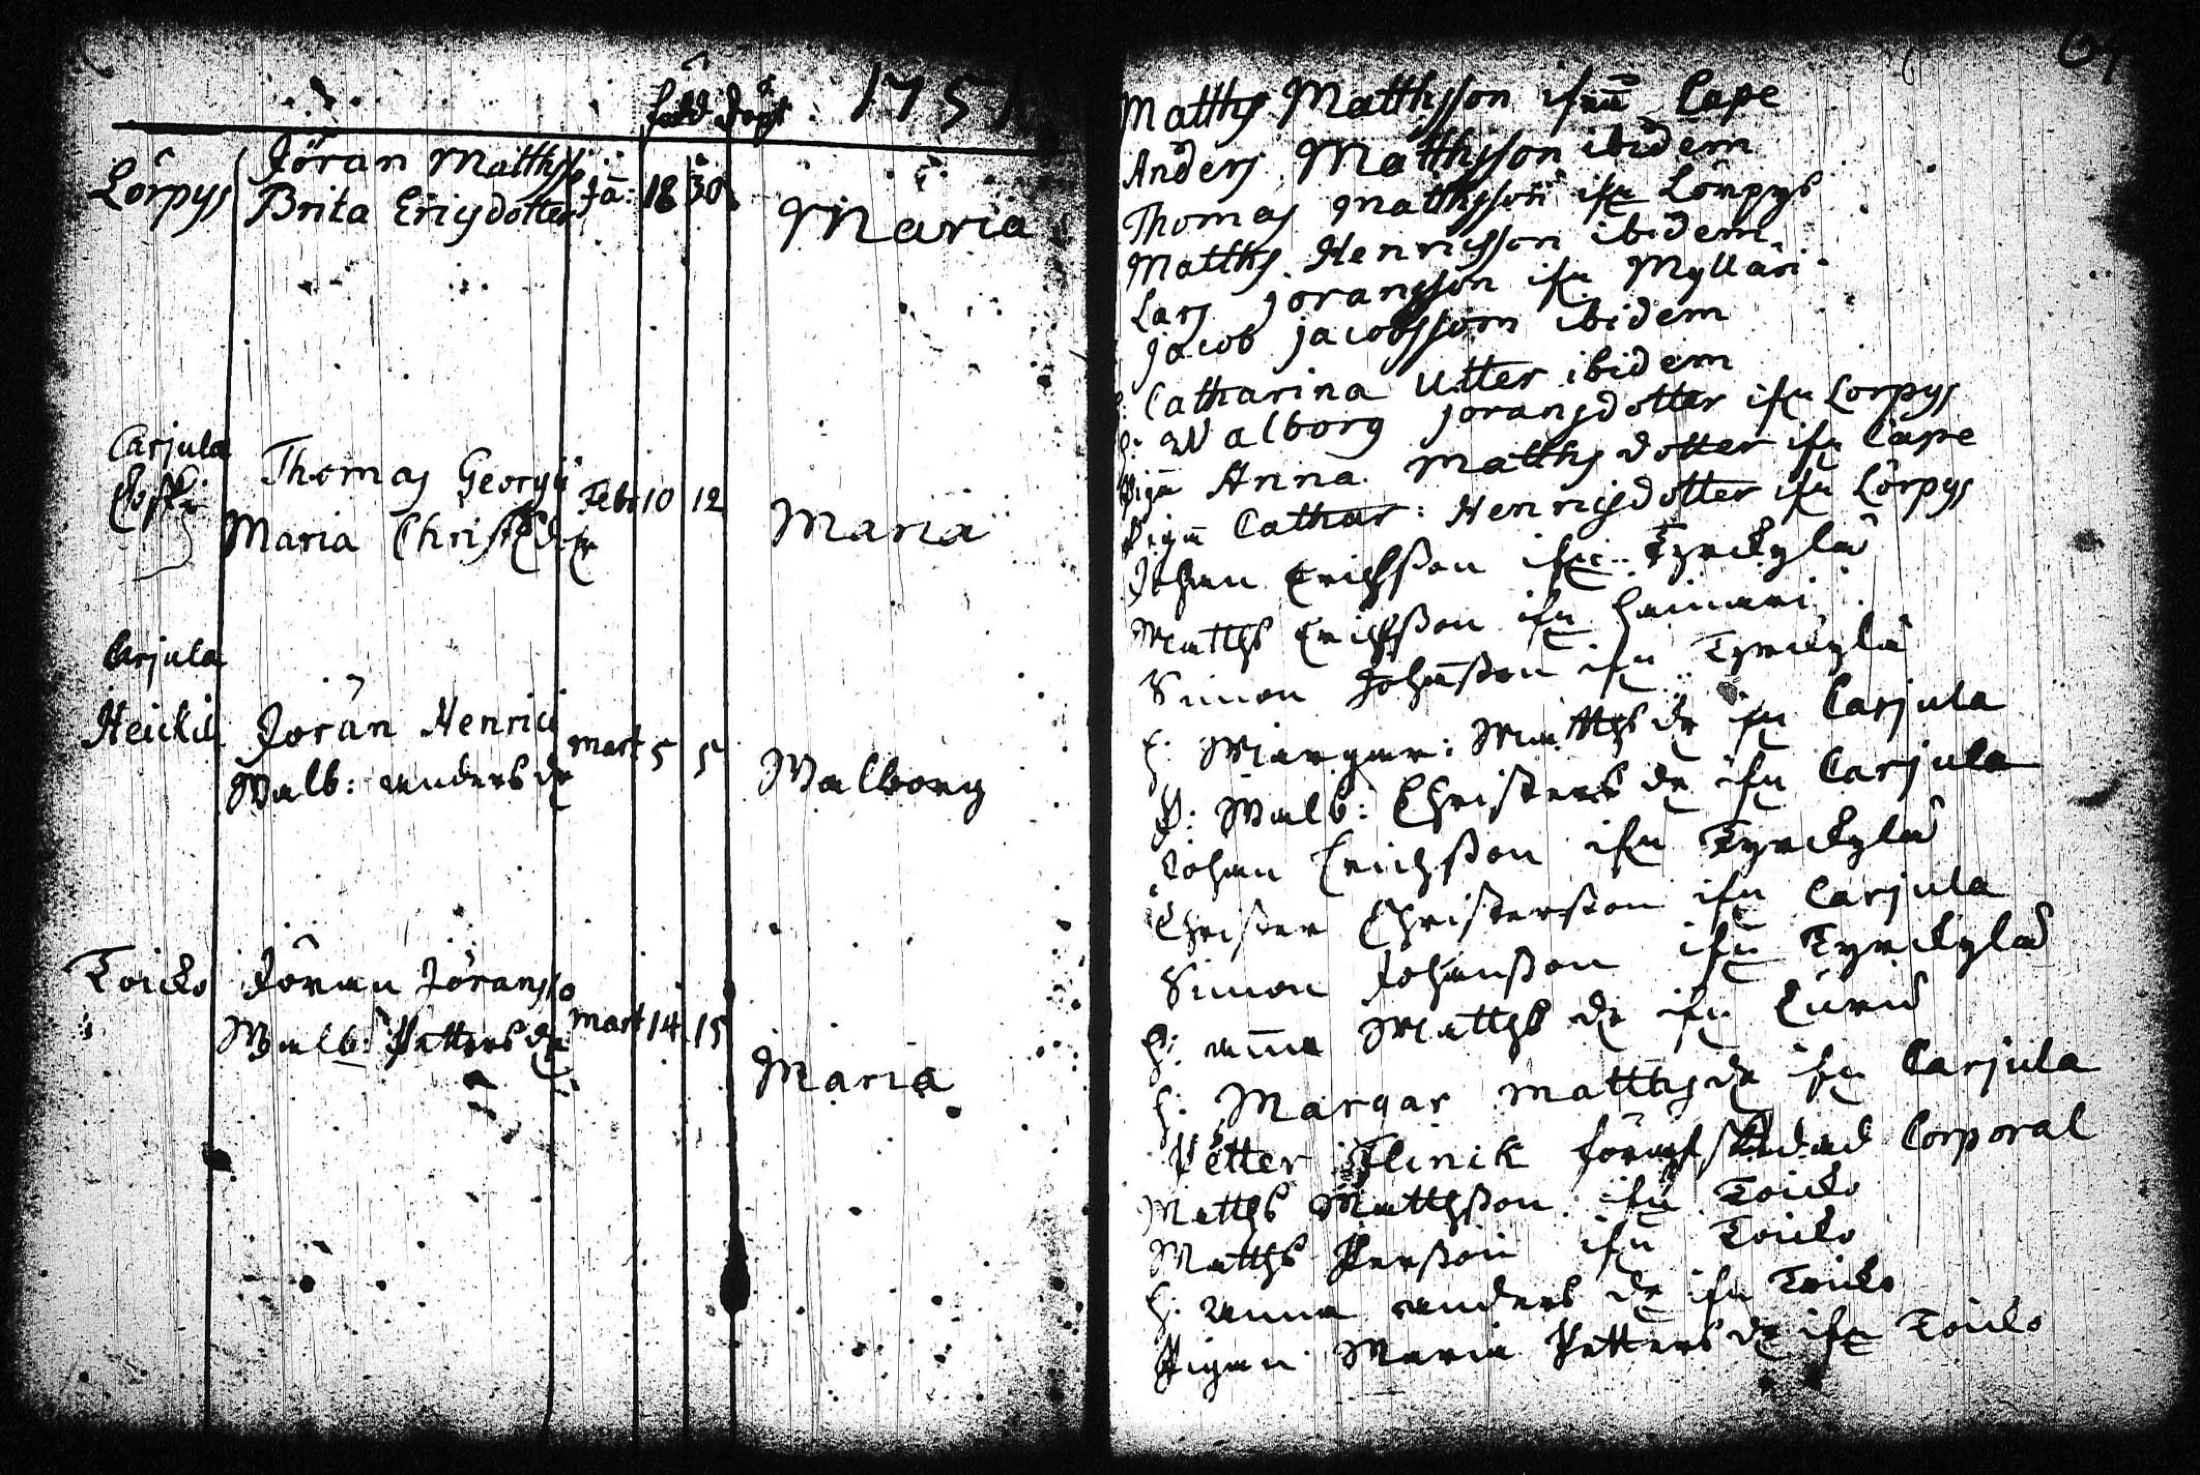 född döpt 1751
Lörpys Jöran Matthss
Brita Erigsdotter Ja: 18 30 Maria
Carjula
Thomas Georgii Febr 10 12
Maria Christersdr Maria
Carjula
Heickilä Jöran Henrici Mart 5 5
Walb: Andersdr Walborg
Toicko Jöran Jöransso
Walb: Pettersdr Mart 14 15
Maria
Matths Matthsson ifrån Cape
Anders Matthsson ibidem
Thomas Matthsson ifn Lörpys
Matths Henricsson ibidem
Lars Joransson ifn Myllari
Jacob Jacobsson ibidem
Catharina Utter ibidem
h: Walborg Joransdotter ifn Lorpys
Pign Anna Matthsdotter ifn Cape
Pign Cathar: Henrigsdotter ifn Lörpys
Johan Erichsson ifn Tyrckylä
Matths Erichsson ifn
Simon Johansson ifn Tyrckylä
h: Margar: Matths dr ifn Carjula
P: Walb: Christers dr ifn Carjula
Johan Erichsson ifn Tyrckylä
Christer Christersson ifn Carjula
Simon Johansson ifn Tyrckylä
h: Anna Matths dr ifn
h: Margar Matths dr ifn Carjula
Petter Flinik förafskedad Corporal
Matths Matthsson ifn Toicko
Matths Persson ifn Toicko
h: Anna Anders dr ifn Toicko
Pigan Maria Petters dr ifn Toicko